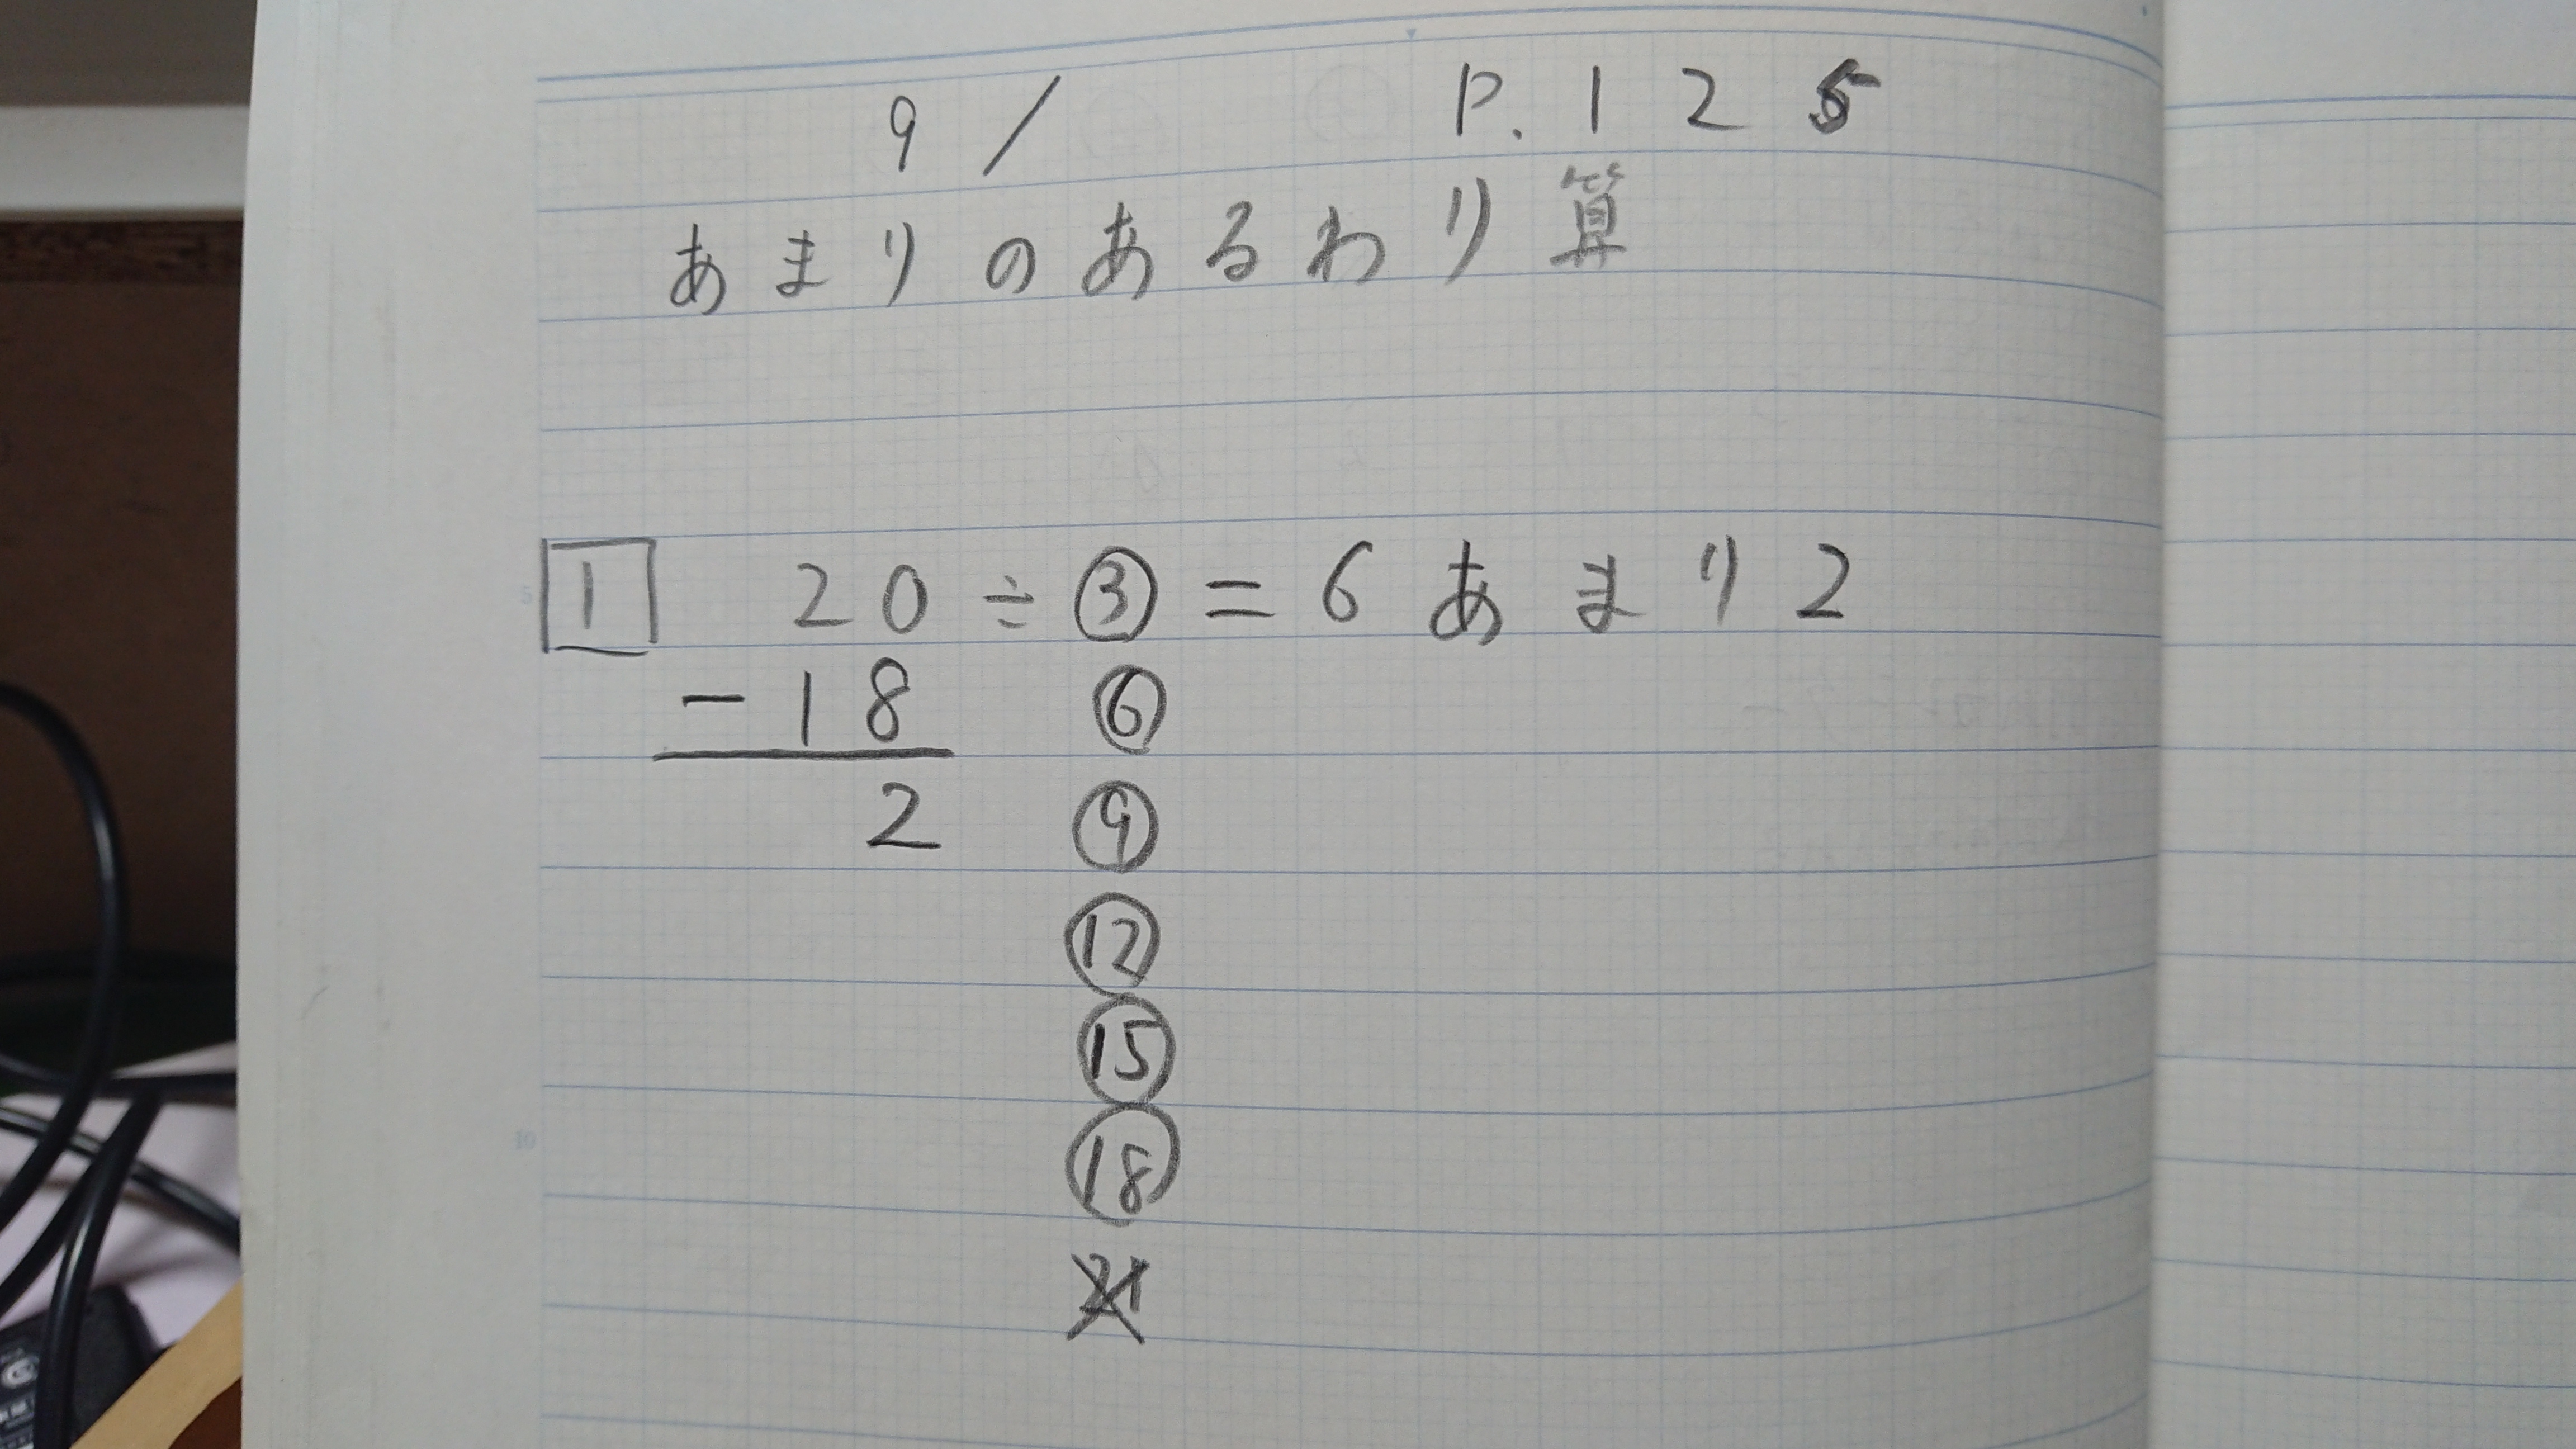 9 / P. 1 2 5
あまりのあるわり算
1 20 ÷ ③ = 6 あまり 2
－18 ⑥
2 ⑨
⑫
⑮
⑱
21